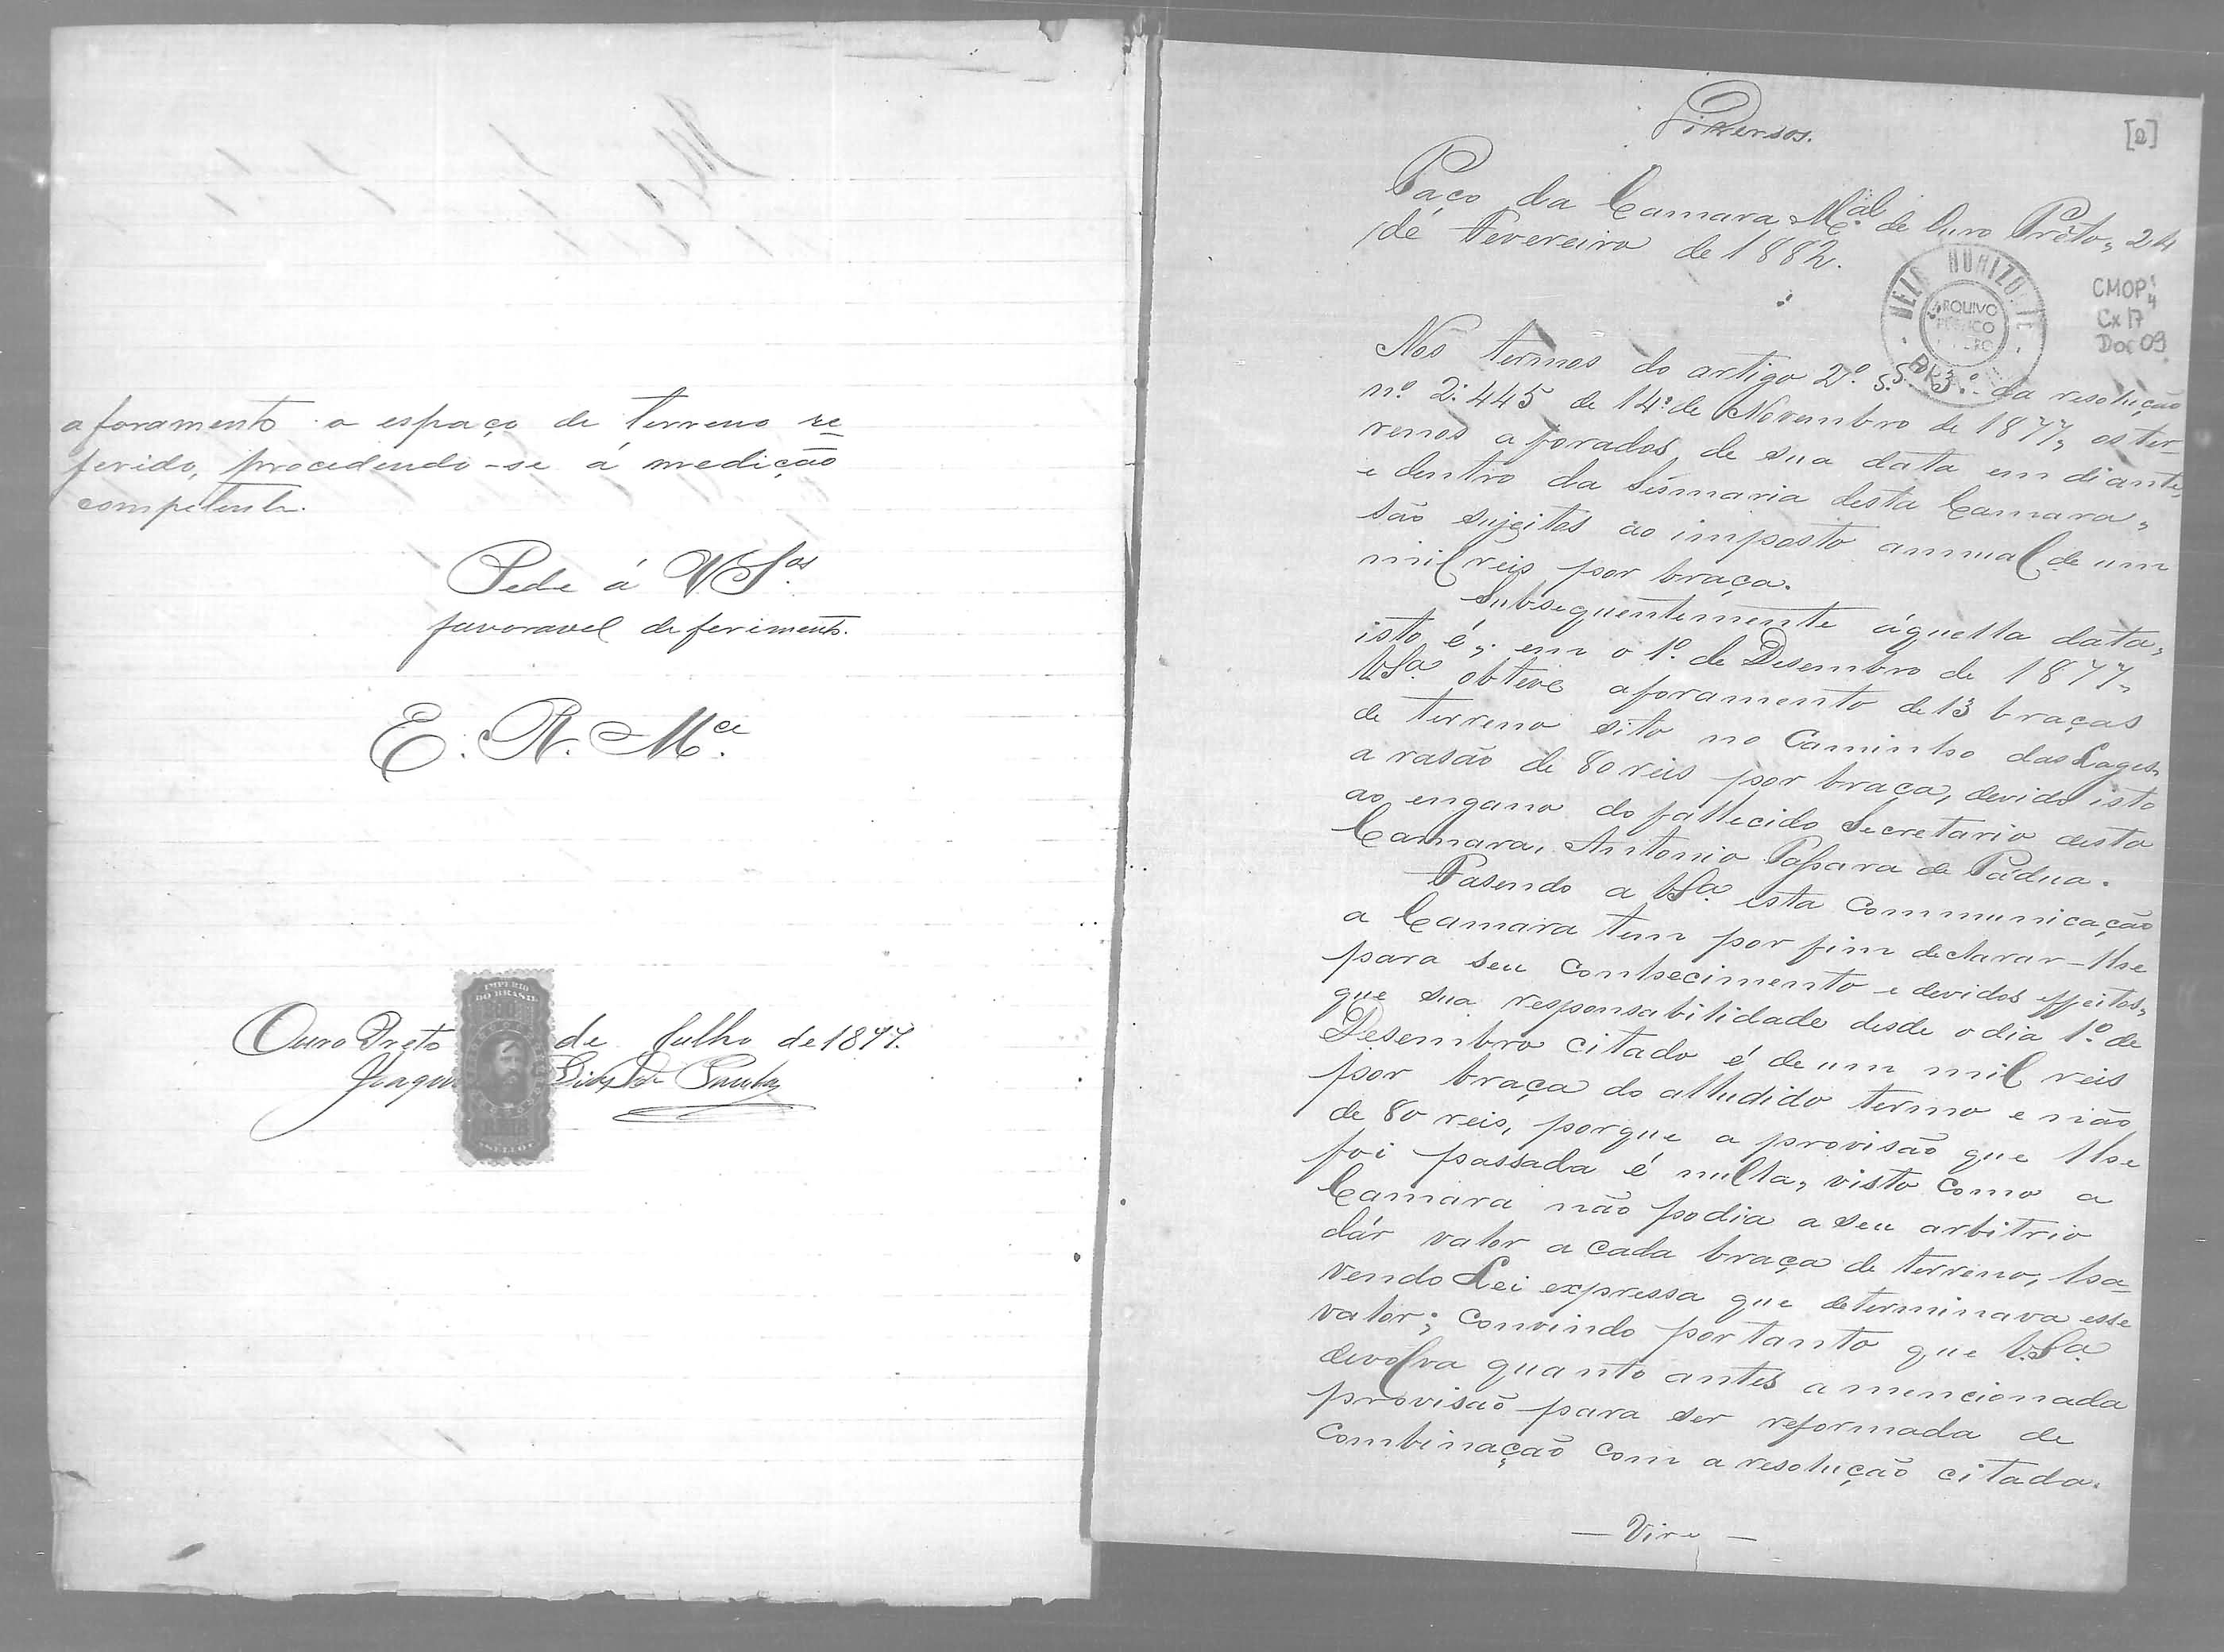 aforamento o espaço de terreno re=
ferido, procedendo-se á medição
competente.
Pede á V Sas
favoravel deferimento.
E. R. Mce.
IMPERIO
DO BRASIL
Ouro Preto de Julho de 1877.
Joaqu de Paula
Diversos.
[2]
Paço da Camara Mal. de Ouro Prêto, 24
de Fevereiro de 1882.
ARQUIVO
CMOP 4
Cx 17
Doc 09
Nos termos do artigo 2º. § 3º da resolução
nº. 2.445 de 14 de Novembro de 1877, os ter-
renos aforados de sua data em diante,
e dentro da Sesmaria desta Camara,
são sujeitos ao imposto annual de um
mil reis por braça.
Subsequentemente áquella data,
isto é, em o 1º. de Desembro de 1877,
VSa. obteve aforamento de 13 braças
de terreno sito no Caminho das Lages,
a rasão de 80 reis por braça, devido isto
ao engano do fallecido Secretario desta
Camara, Antonio de Pádua.
Fasendo a VSa. esta communicação
a Camara tem por fim declarar-lhe
para seu conhecimento e devidos effeitos,
que sua responsabilidade desde o dia 1º. de
Desembro citado é de um mil reis
por braça do alludido termo e não
de 80 reis, porque a provisão que lhe
foi passada é nulla, visto como a
Camara não podia a seu arbitrio
dár valor a cada braça de terreno, ha=
vendo Lei expressa que determinava esse
valor; convindo portanto que V.Sa.
devolva quanto antes a mencionada
provisão para ser reformada de
combinação com a resolução citada.
— Vire —